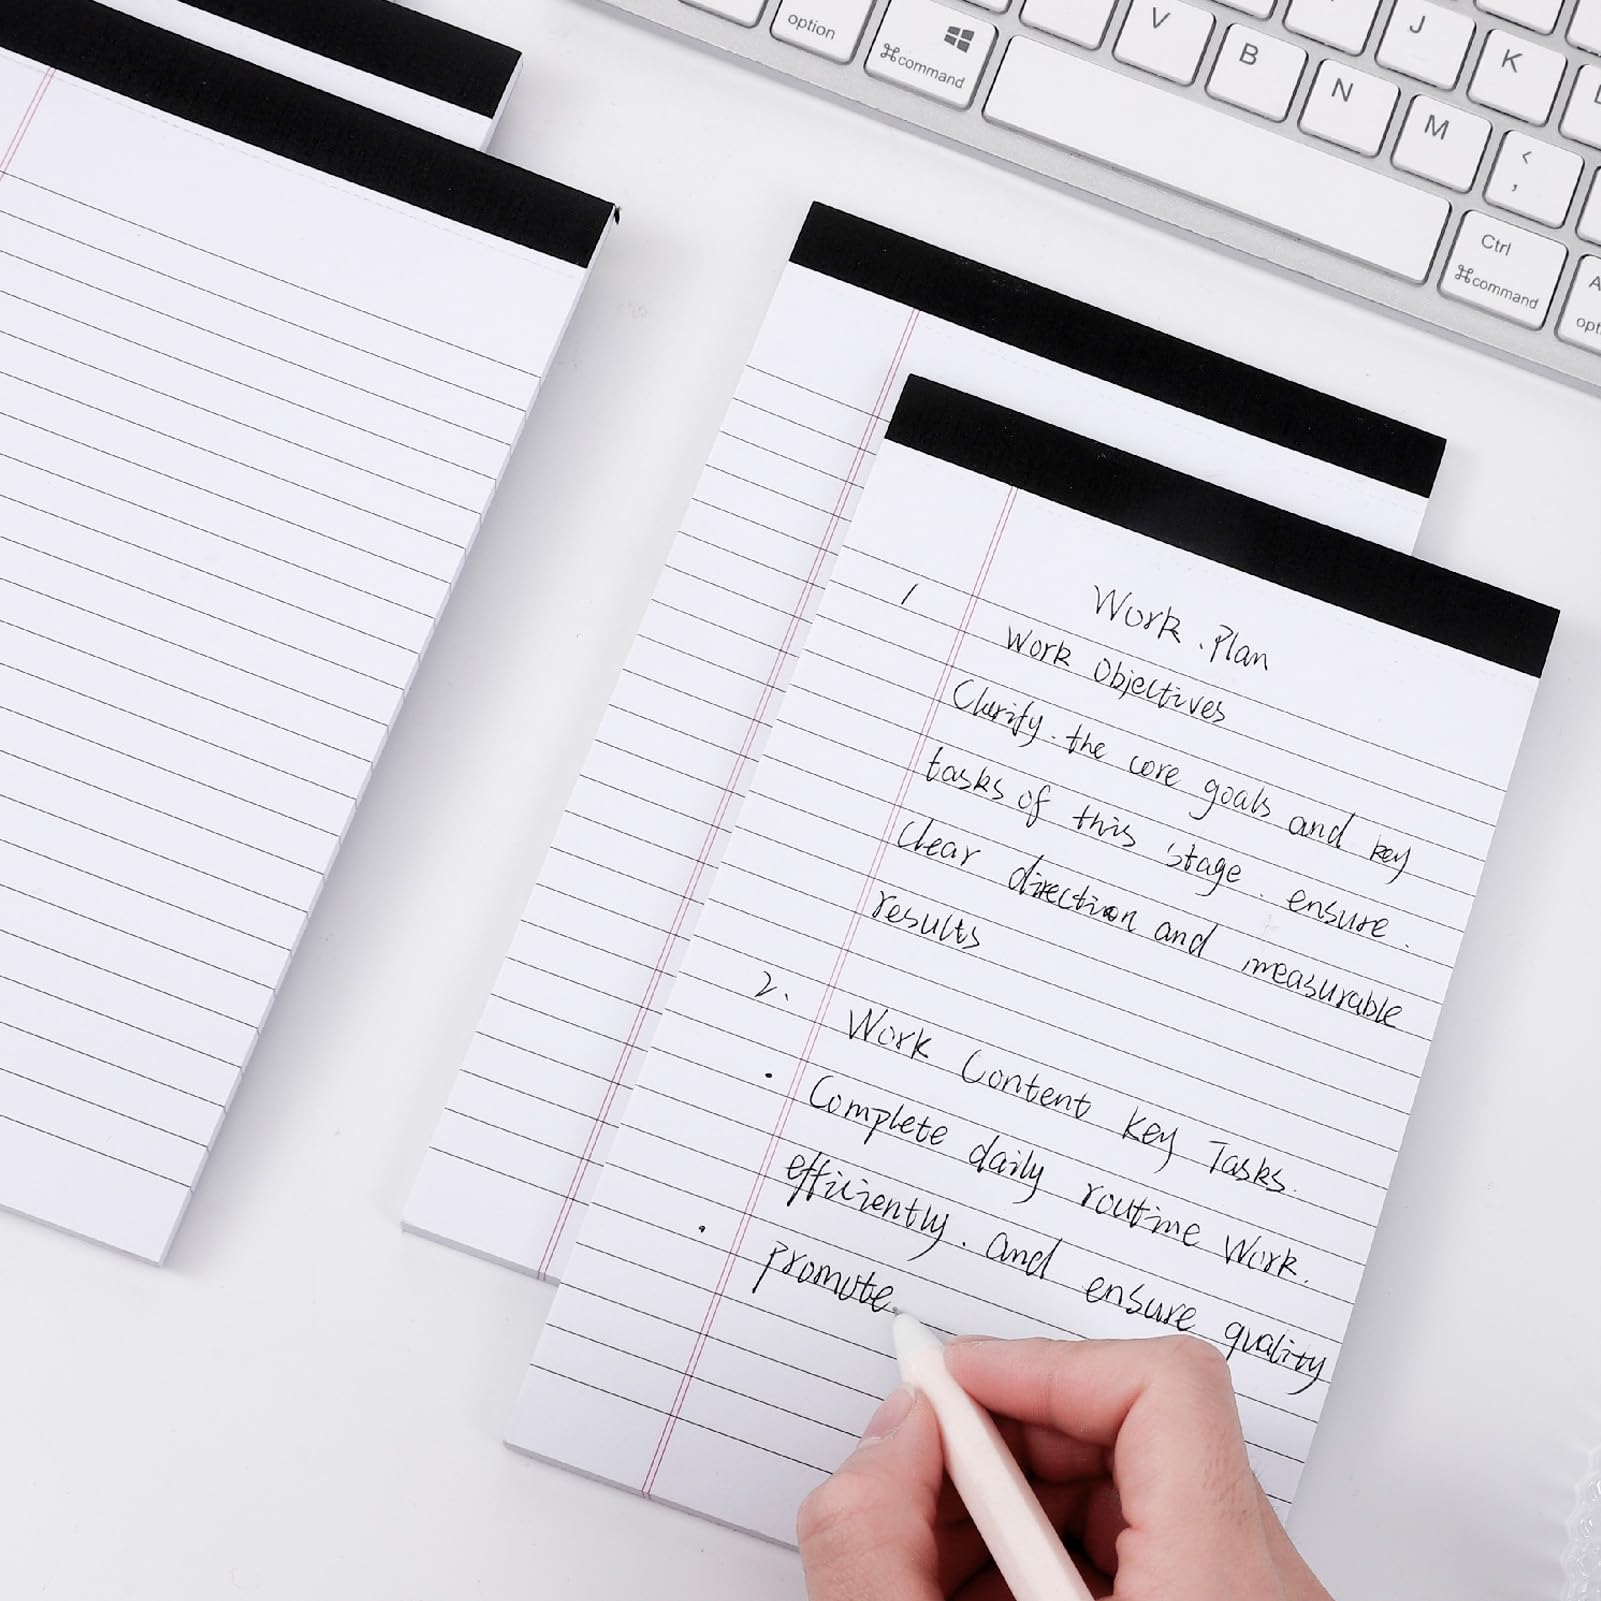 option
⌘command
V
B
N
M
J
K
<
,
Ctrl
⌘command
Work .Plan
1 Work Objectives
Clarify. the core goals and key
tasks of this stage. ensure.
clear direction and measurable
results
2. Work Content Key Tasks.
· Complete daily routine Work.
efficiently. and ensure quality
· promote